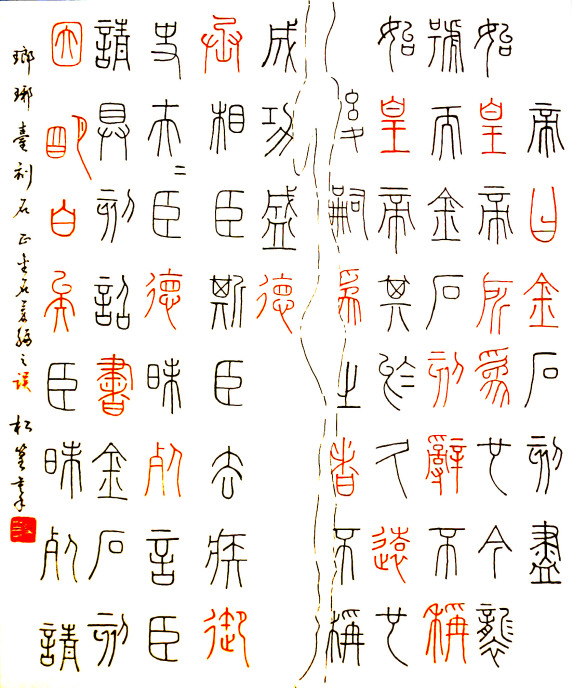 帝曰金石刻盡
始皇帝所為也今襲
號而金石刻辭不稱
始皇帝其於久遠也
後嗣為之者不稱
成功盛德
丞相臣斯臣去疾御
史夫=臣德昧死言臣
請具刻詔書金石刻
因明白矣臣昧死請
瑯琊臺刻石正金石萃編之誤